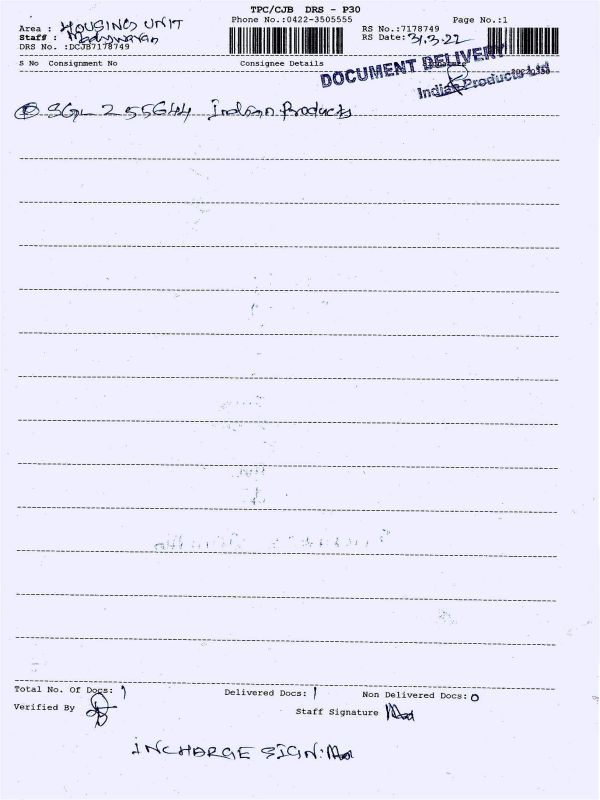 TPC/CJB DRS - P30
Phone No.:0422-3505555 Page No.:1
Area : HOUSING UNIT
RS No.:7178749
Staff :
RS Date: 31.3.22
DRS No. :DCJB7178749
S No Consignment No Consignee Details
DOCUMENT DELIVERY
Indian Products Ltd
SGL 255644 Indian Products
Total No. Of Docs: 1 Delivered Docs: 1 Non Delivered Docs: 0
Verified By Staff Signature
INCHARGE SIGN: